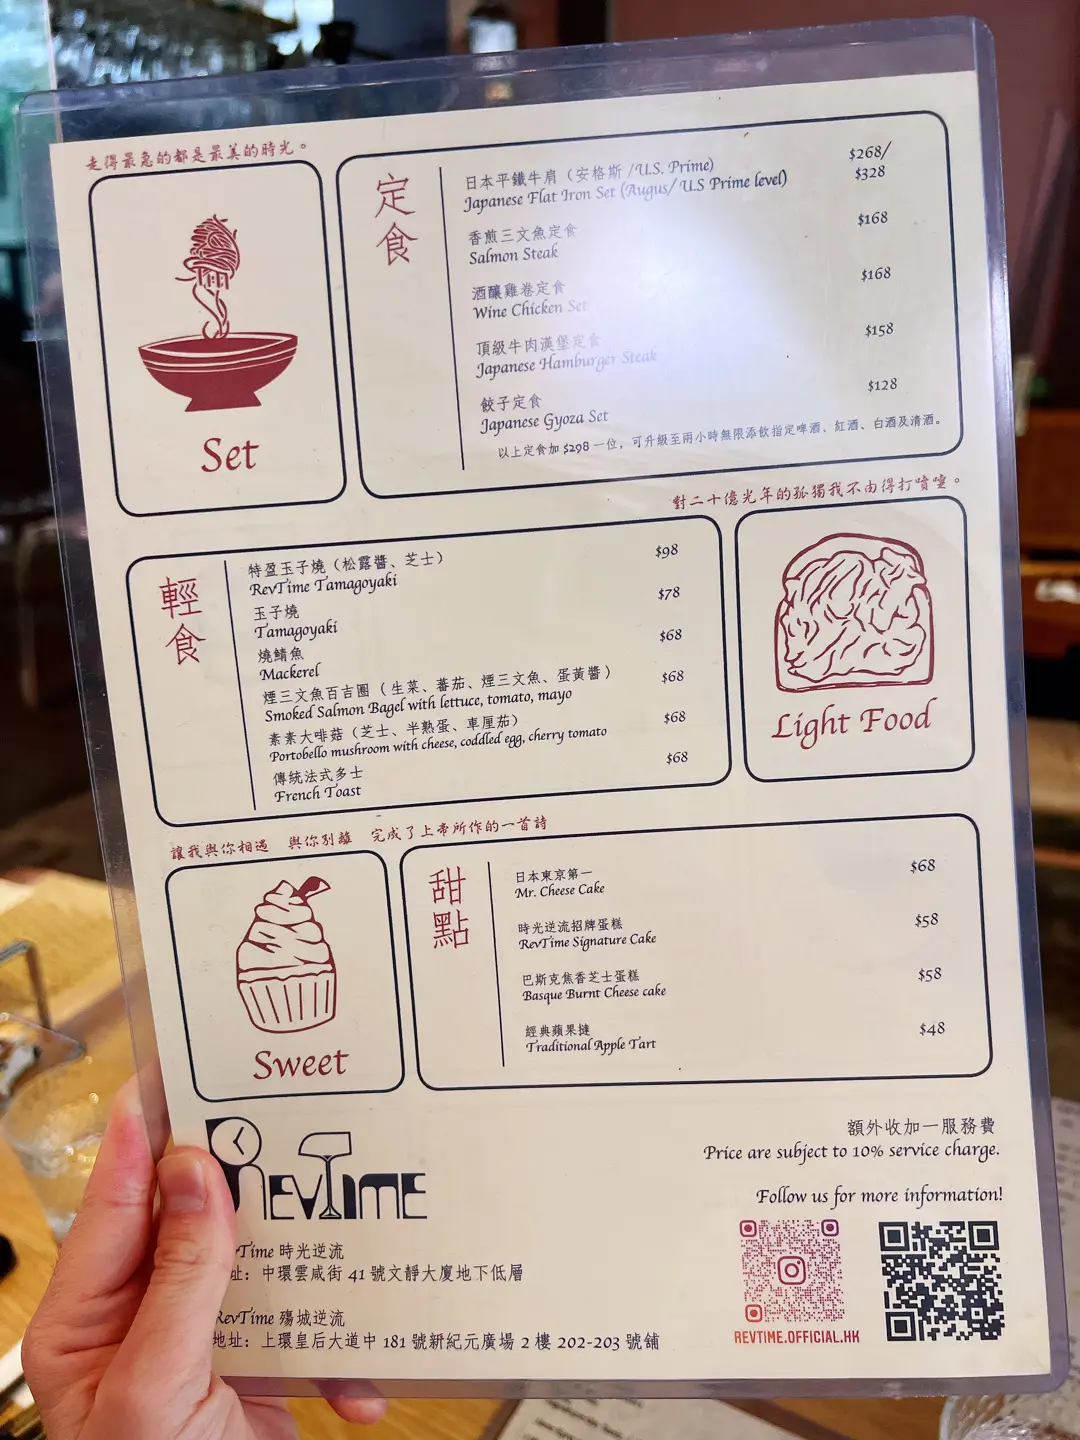 走得最急的都是最美的時光。
Set
定食
日本平鐵牛肩（安格斯 /U.S. Prime)
Japanese Flat Iron Set (Augus/ U.S Prime level)
$268/
$328
香煎三文魚定食
Salmon Steak
$168
酒釀雞卷定食
Wine Chicken Set
$168
頂級牛肉漢堡定食
Japanese Hamburger Steak
$158
餃子定食
Japanese Gyoza Set
$128
以上定食加 $298 一位，可升級至兩小時無限添飲指定啤酒、紅酒、白酒及清酒。
對二十億光年的孤獨我不由得打噴嚏。
輕食
特盈玉子燒（松露醬、芝士）
RevTime Tamagoyaki
$98
玉子燒
Tamagoyaki
$78
燒鯖魚
Mackerel
$68
煙三文魚百吉圈（生菜、蕃茄、煙三文魚、蛋黃醬）
Smoked Salmon Bagel with lettuce, tomato, mayo
$68
素素大啡菇（芝士、半熟蛋、車厘茄）
Portobello mushroom with cheese, coddled egg, cherry tomato
$68
傳統法式多士
French Toast
$68
Light Food
讓我與你相遇 與你別離 完成了上帝所作的一首詩
Sweet
甜點
日本東京第一
Mr. Cheese Cake
$68
時光逆流招牌蛋糕
RevTime Signature Cake
$58
巴斯克焦香芝士蛋糕
Basque Burnt Cheese cake
$58
經典蘋果撻
Traditional Apple Tart
$48
REVTIME
額外收加一服務費
Price are subject to 10% service charge.
Follow us for more information!
REVTIME.OFFICIAL.HK
Time 時光逆流
址：中環雲咸街 41 號文靜大廈地下低層
RevTime 殤城逆流
地址：上環皇后大道中 181 號新紀元廣場 2 樓 202-203 號舖